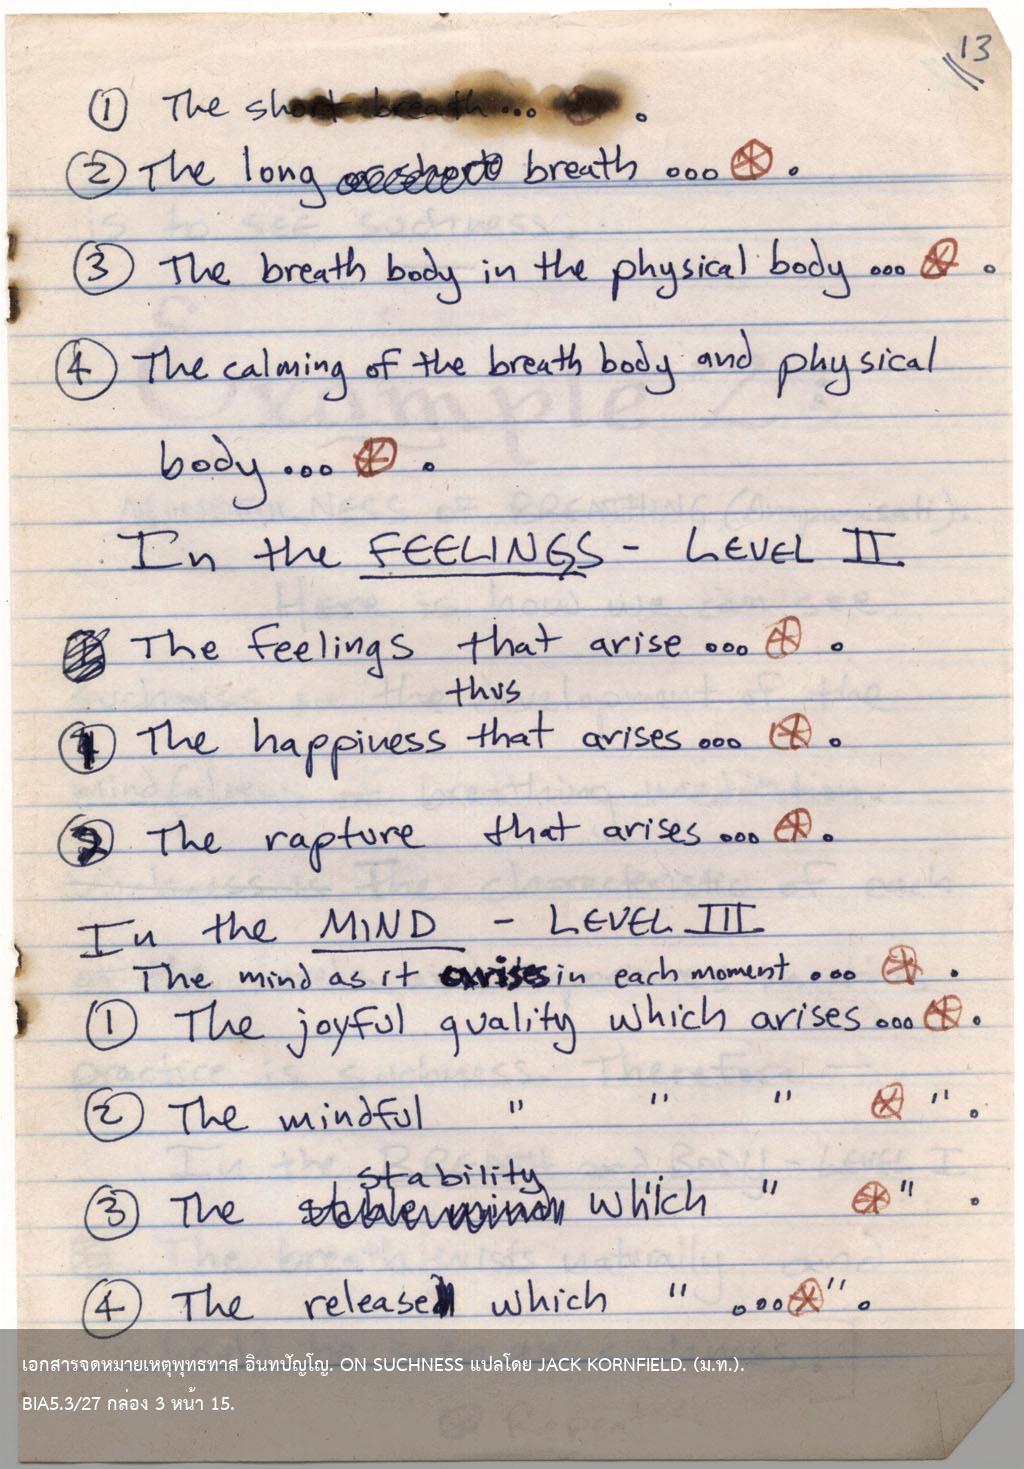 13
① The short breath... ⊛ .
② The long breath ... ⊛ .
③ The breath body in the physical body ... ⊛ .
④ The calming of the breath body and physical
body ... ⊛ .
In the FEELINGS - LEVEL II
The feelings that arise ... ⊛ .
thus
① The happiness that arises ... ⊛ .
② The rapture that arises ... ⊛ .
In the MIND - LEVEL III
The mind as it arises in each moment ... ⊛ .
① The joyful quality which arises ... ⊛ .
② The mindful " " " ⊛ " .
stability
③ The stable mind which " ⊛ " .
④ The release which " ...⊛ " .
เอกสารจดหมายเหตุพุทธทาส อินทปัญโญ. ON SUCHNESS แปลโดย JACK KORNFIELD. (ม.ท.).
BIA5.3/27 กล่อง 3 หน้า 15.